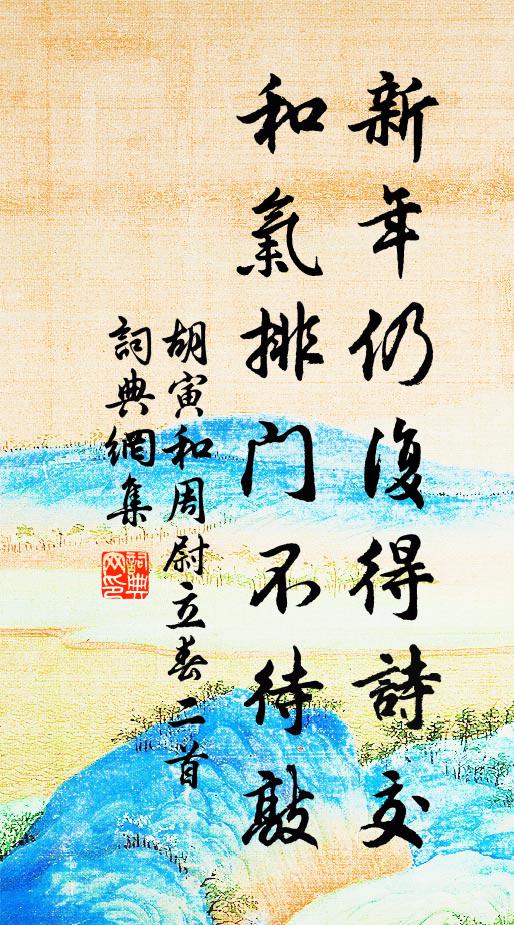 新年仍復得詩交
和氣排門不待敲
胡寅和周尉立春二首
詞典網集
詞典